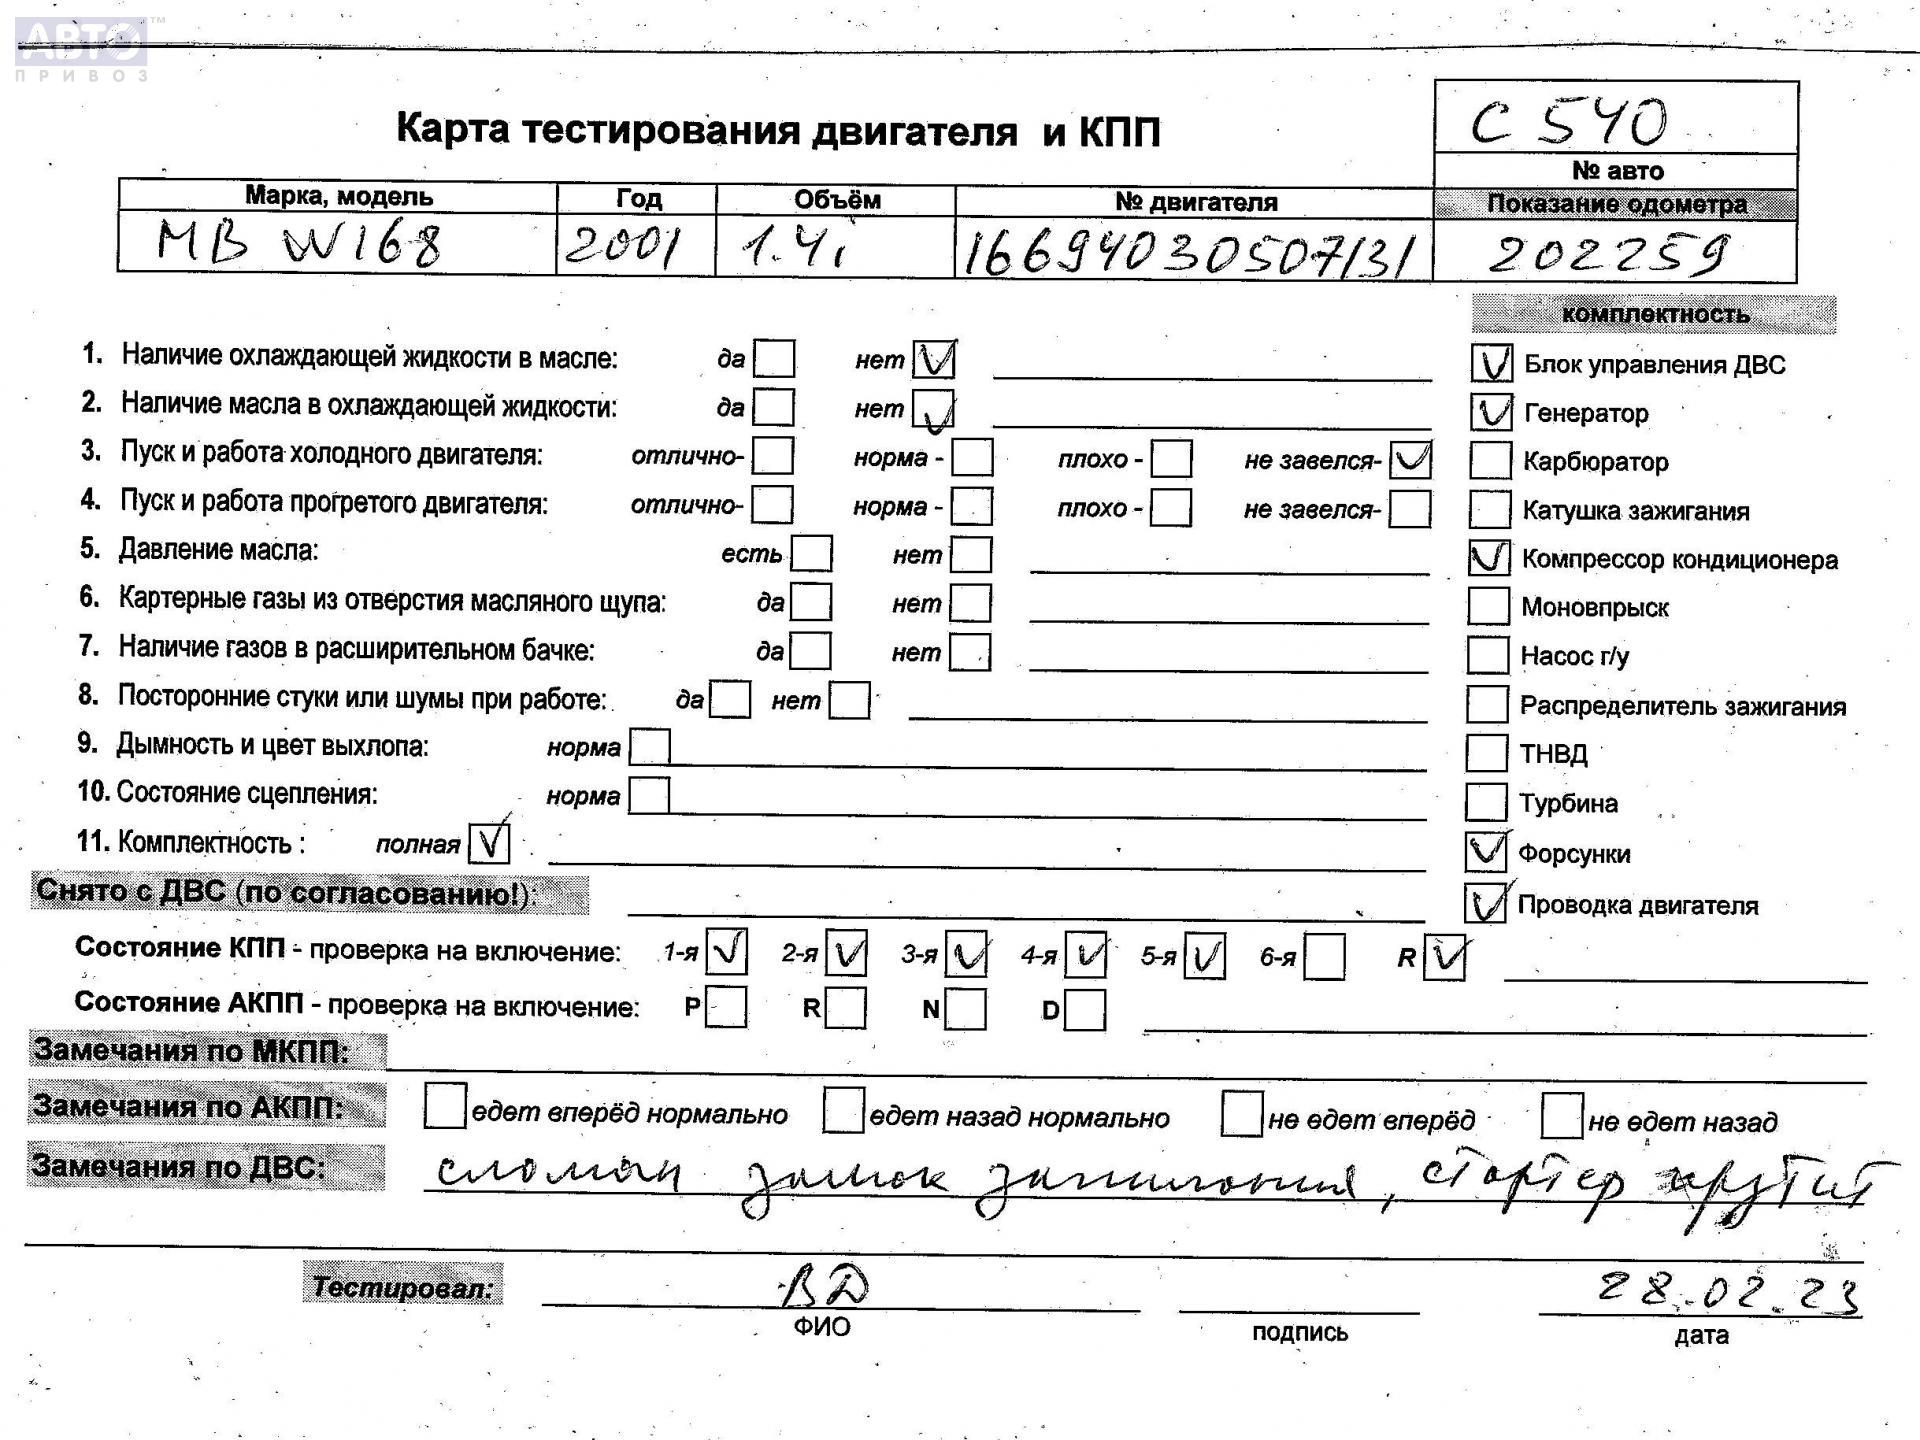 АВТО™
ПРИВОЗ
С 540
Карта тестирования двигателя и КПП
№ авто
Марка, модель Год Объём № двигателя Показание одометра
MB W168 2001 1.4i 16694030507131 202259
комплектность
1. Наличие охлаждающей жидкости в масле: да нет Блок управления ДВС
2. Наличие масла в охлаждающей жидкости: да нет Генератор
3. Пуск и работа холодного двигателя: отлично- норма - плохо - не завелся- Карбюратор
4. Пуск и работа прогретого двигателя: отлично- норма - плохо - не завелся- Катушка зажигания
5. Давление масла: есть нет Компрессор кондиционера
6. Картерные газы из отверстия масляного щупа: да нет Моновпрыск
7. Наличие газов в расширительном бачке: да нет Насос г/у
8. Посторонние стуки или шумы при работе: да нет Распределитель зажигания
9. Дымность и цвет выхлопа: норма ТНВД
10. Состояние сцепления: норма Турбина
11. Комплектность : полная Форсунки
Снято с ДВС (по согласованию!): Проводка двигателя
Состояние КПП - проверка на включение: 1-я 2-я 3-я 4-я 5-я 6-я R
Состояние АКПП - проверка на включение: P R N D
Замечания по МКПП:
Замечания по АКПП: едет вперёд нормально едет назад нормально не едет вперёд не едет назад
Замечания по ДВС: сломан замок зажигания, стартер крутит
Тестировал: ВД 28.02.23
ФИО подпись дата